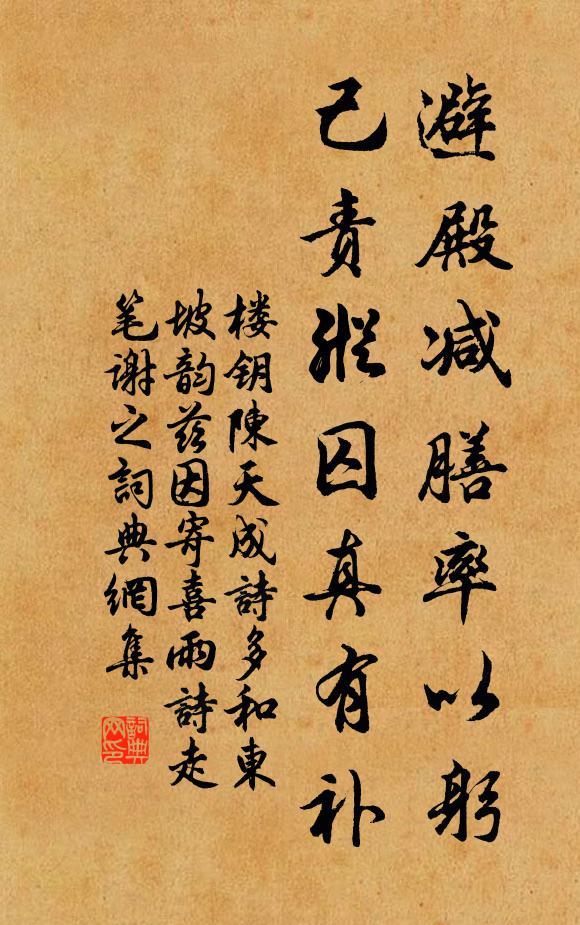 避殿减膳率以躬
己责纵因真有补
楼钥陈天成詩多和東
坡韵兹因寄喜雨詩走
笔谢之詞典網集
詞典网印